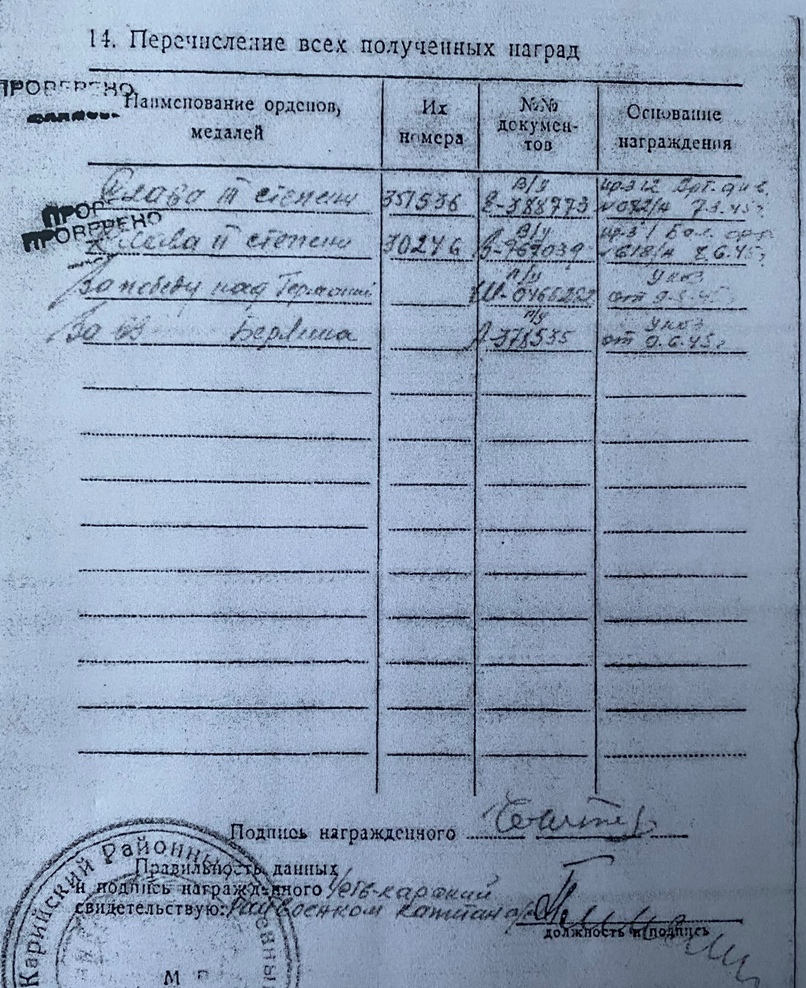 14. Перечисление всех полученных наград
ПРОВЕРЕНО
Наименование орденов, медалей
Их номера
№№ документов
Основание награждения
ПРОВЕРЕНО
Слава III степени 351536 В/у Е-388773 7.3.45г
Слава II степени 30276 В/у В-767039 618/н 2.6.45г
За победу над Германией П/у Ш-0466252 Указ от 9.5.45г
За вз Берлина П/у А-378535 Указ от 9.6.45г
Подпись награжденного
Правильность данных
и подпись награжденного Усть-карский
свидетельствую: Райвоенком капитан
должность и подпись
Карийский Районный
М